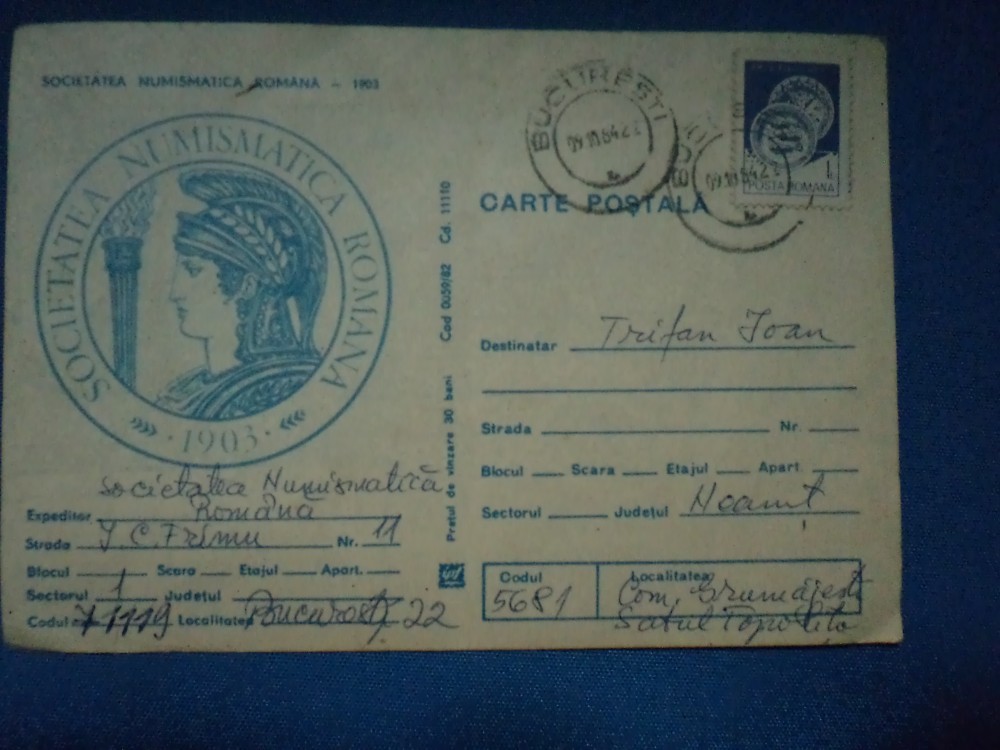 SOCIETATEA NUMISMATICA ROMÂNA - 1903
SOCIETATEA NUMISMATICA ROMANA
· 1903 ·
Societatea Numismatică
Expeditor Română
Strada I. C. Frimu Nr. 11
Blocul Scara Etajul Apart.
Sectorul 1 Județul
Codul 71119 Localitatea București 22
Prețul de vînzare 30 bani Cod 0059/82 Cd. 11110
BUCUREȘTI
09.10.84.21
09.10.84.21
1 L
POSTA ROMANA
CARTE POȘTALĂ
Destinatar Trifan Ioan
Strada Nr.
Blocul Scara Etajul Apart.
Sectorul Județul Neamț
Codul Localitatea
5681 Com. Grumăzești
Satul Topolița